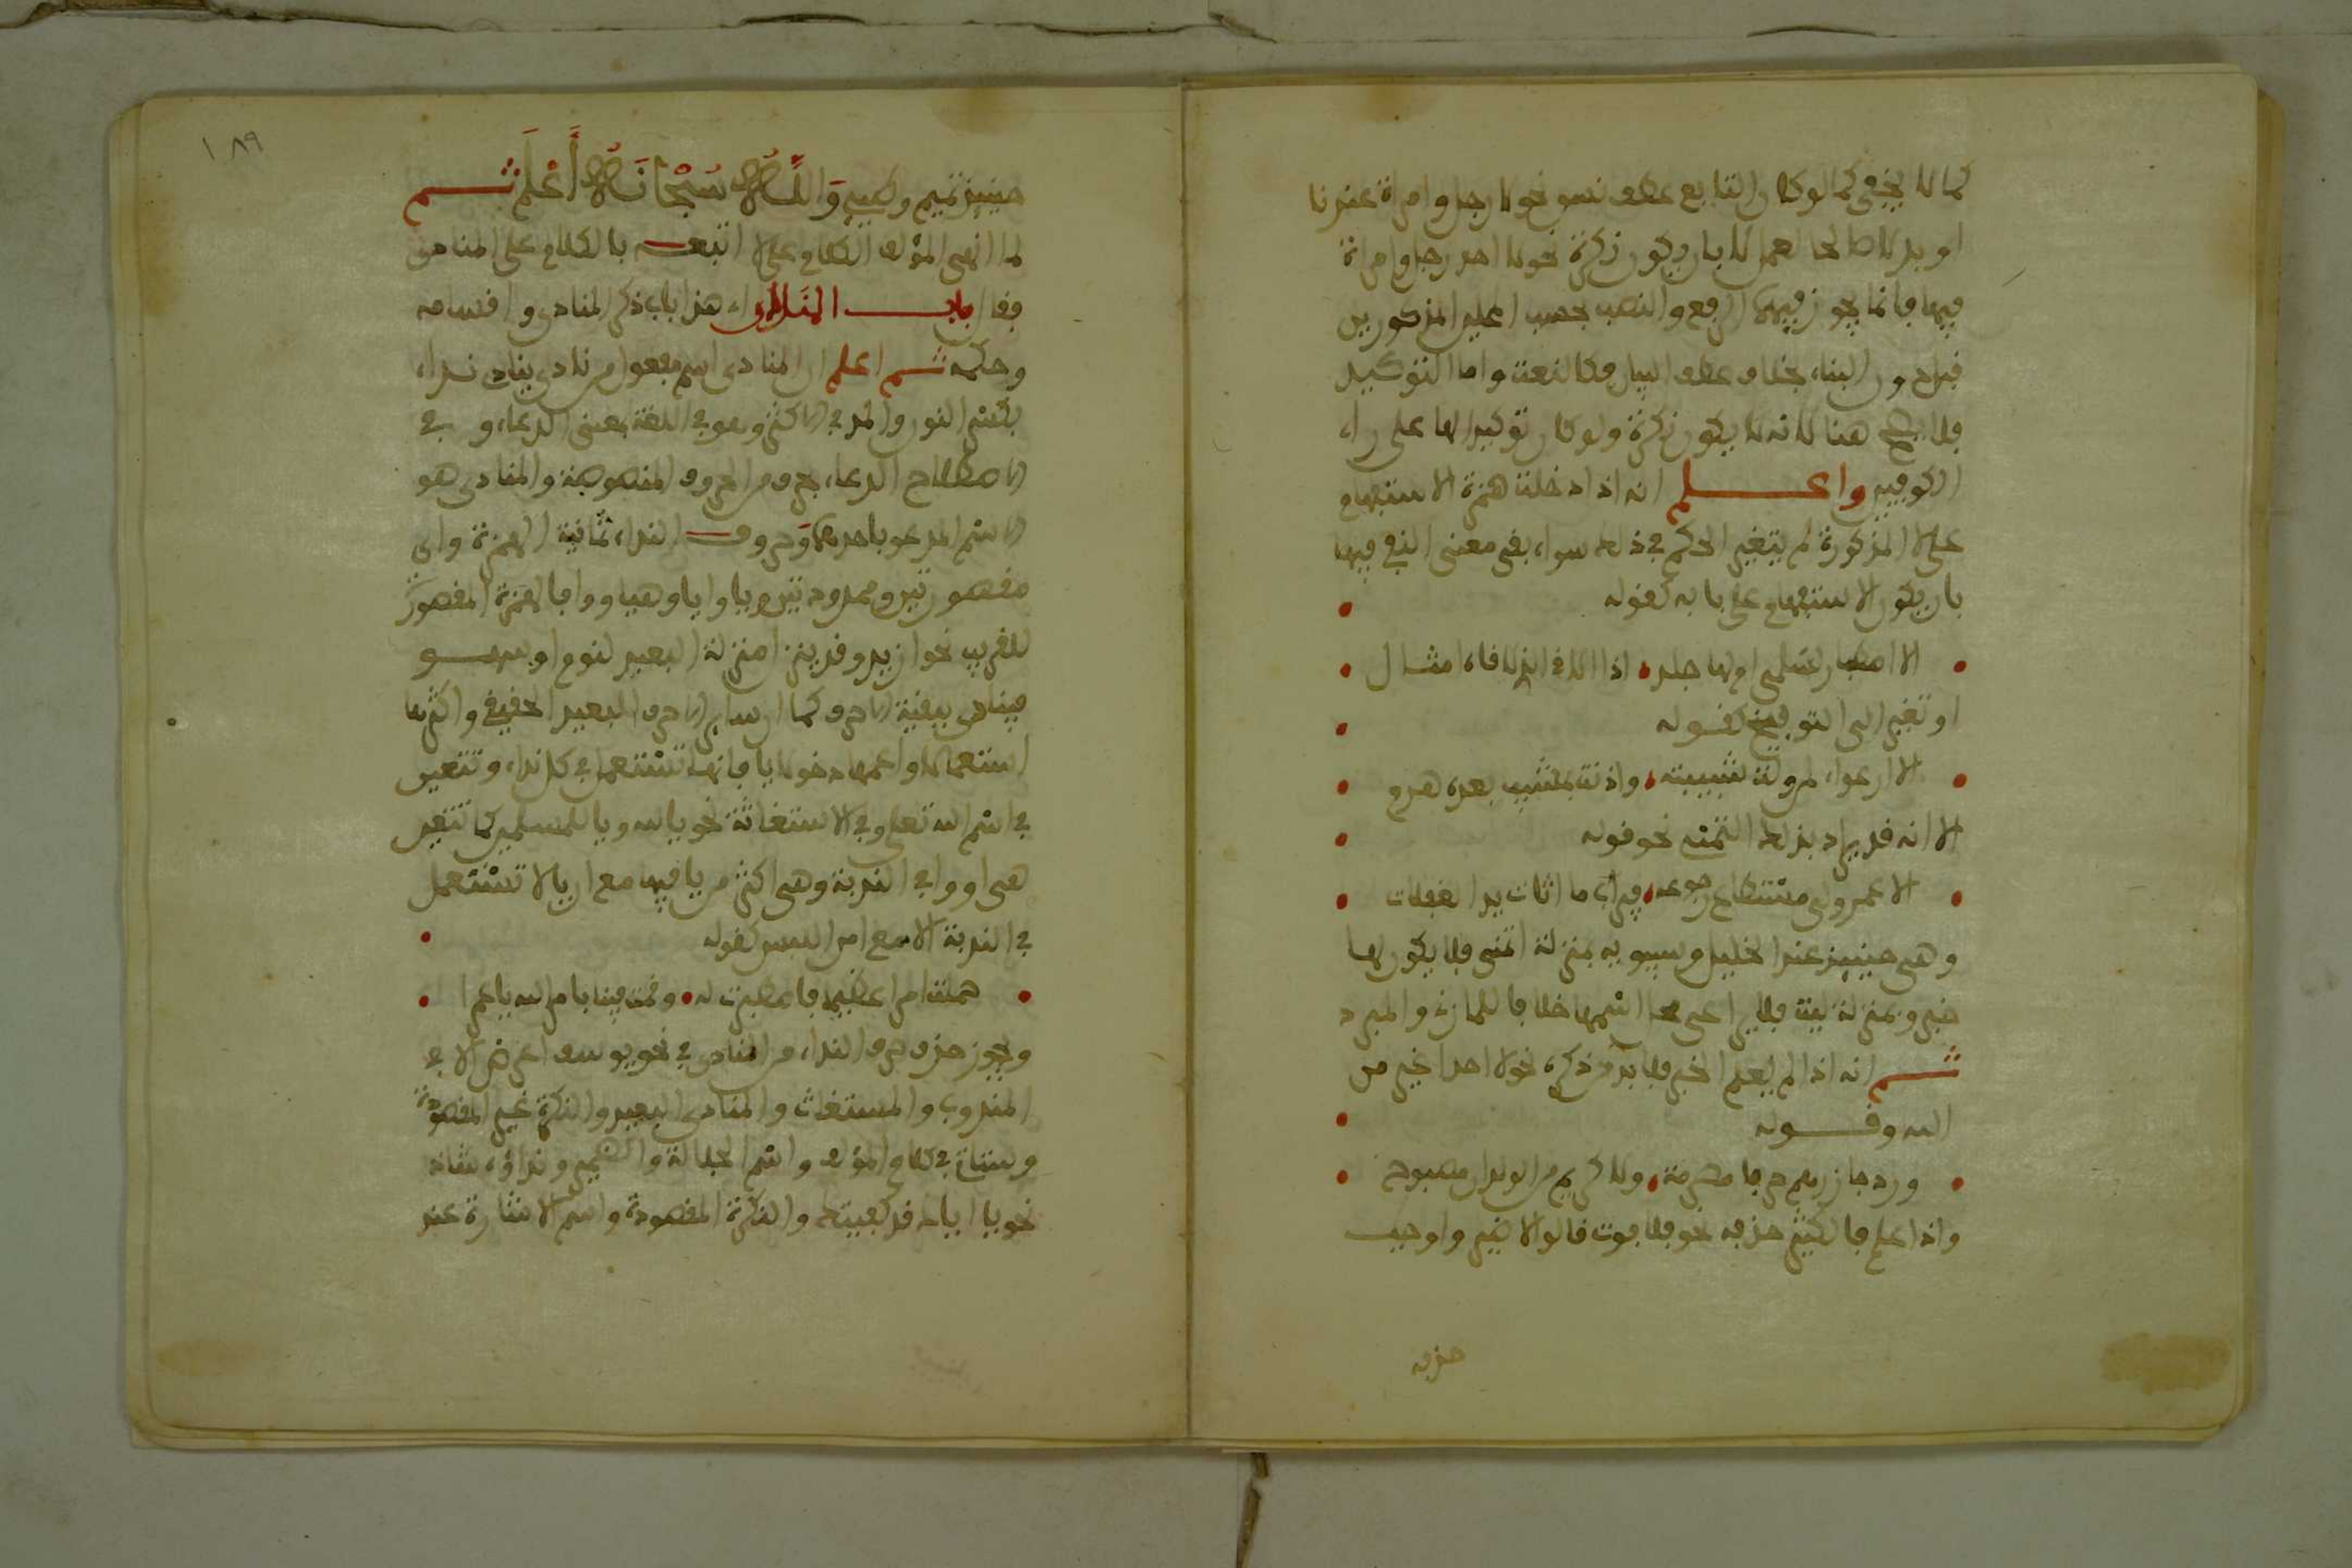 كما لا يخفى كما لو كان التابع عطف نسق نحو لا رجل وامراة عندنا
او بدلا صالحا لعمل لا بان يكون نكرة نحو لا احد رجل وامراة
فيها فانما يجوز فيهما الرفع والنصب بحسب المحلين المذكورين
فيه دون البناء بخلاف عطف البيان فكالنعت واما التوكيد
فلا يصح هنا لانه لا يكون نكرة ولو كان توكيدا لها على راء
الكوفيين واعلم انه اذا دخلت همزة الاستفهام
على لا المذكورة لم يتغير الحكم في ذلك سواء بقى معنى النفى فيها
بان يكون الاستفهام على بابه كقوله
الا اصطبار لسلمى ام لها جلد اذا الاقى الذى لاقاه امثال
او تغير الى التوبيخ كقوله
الا ارعواء لمن ولت شبيبته واذنت بمشيب بعده هرم
الا انه قد يراد بذلك التمنى نحو قوله
الا عمر ولى مستطاع رجوعه فيراب ما اثات يد الغفلات
وهى حينئذ عند الخليل وسيبويه بمنزلة اتمنى فلا يكون لها
خبر وبمنزلة ليت فلا يراعى محل اسمها خلافا للمازنى والمبرد
ثم انه اذا لم يعلم الخبر فلا بد من ذكره نحو لا احد اغير من
الله وقوله
ورد جازرهم حرفا مصرمة ولا كريم من الولدان مصبوح
واذا علم فالكثير حذفه نحو فلا فوت قالوا لا ضير واوجب
حذفه
١٨٩
حينئذ تميم وطيء والله سبحانه اعلم ثم
لما انهى المؤلف الكلام على لا اتبعه بالكلام على المنادى
فقال باب المنادى اى هذا باب ذكر المنادى واقسامه
وحكمه ثم اعلم ان المنادى اسم مفعول من نادى ينادى نداء
بكسر النون والمد في الاكثر وهو في اللغة بمعنى الدعاء وفي
الاصطلاح الدعاء بحرف من الحروف المخصوصة والمنادى هو
الاسم المدعو باحدها وحروف النداء ثمانية الهمزة واى
مقصورتين وممدودتين ويا وايا وهيا ووا فالهمزة المقصورة
للقريب نحو ازيد وقد ينزل منزلة البعيد لنوم او سهو
فينادى ببقية الاحرف كما ان ساير الاحرف للبعيد الحقيقى واكثرها
استعمالا واعمها دخولا يا فانها تستعمل في كل نداء وتتعين
في اسم الله تعلى وفي الاستغاثة نحو يا لله ويا للمسلمين كما تتعين
هى او وا في الندبة وهى اكثر من يا فيها مع ان يا لا تستعمل
في الندبة الا مع امن اللبس كقوله
حملت امرا عظيما فاصطبرت له وقمت فينا بامر الله يا عمرا
ويجوز حذف حرف النداء من المنادى في نحو يوسف اعرض الا في
المندوب والمستغاث والمنادى البعيد والنكرة غير المقصودة
وستاتى في كلام المؤلف واسم الجلالة والضمير ونداؤه شاذ
نحو يا اياك قد كفيتك والنكرة المقصودة واسم الاشارة عند